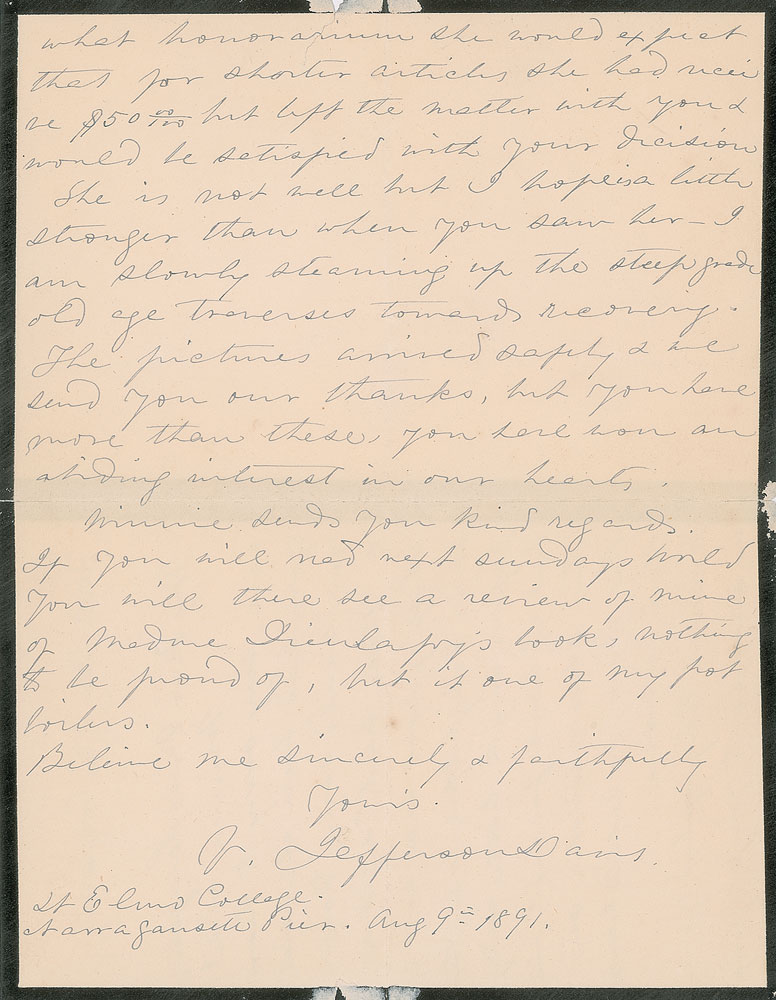 what honorarium she would expect
that for shorter articles she had recei
ve $50 00/100 but left the matter with you &
would be satisfied with your decision
She is not well but I hope is a little
stronger than when you saw her – I
am slowly steaming up the steep grade
old age traverses towards recovery.
The pictures arrived safely & we
send you our thanks, but you have
more than these, you have won an
abiding interest in our hearts.
Winnie sends you kind regards.
If you will read next sundays World
you will there see a review of mine
of Madme Dieulafoy's book, nothing
to be proud of, but it one of my pot
boilers.
Believe me sincerely & faithfully
Yours.
V. Jefferson Davis.
St Elmo Cottage.
Narragansett Pier. Aug 9th 1891.